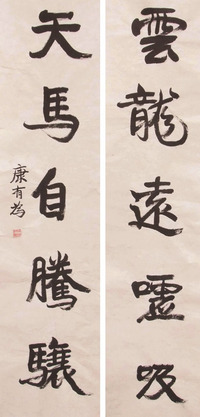 雲龍遠噓吸
天馬自騰驤
康有為